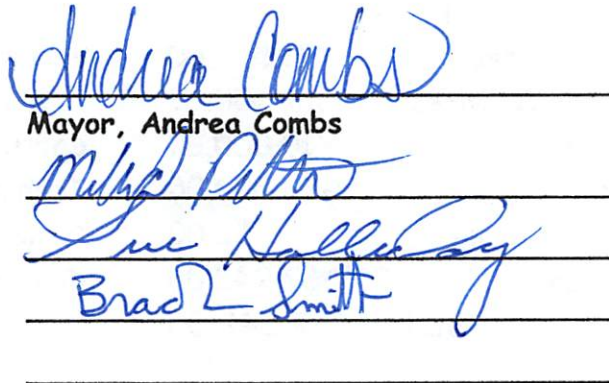 Andrea Combs
Mayor, Andrea Combs
Sue Halliday
Brad Smith